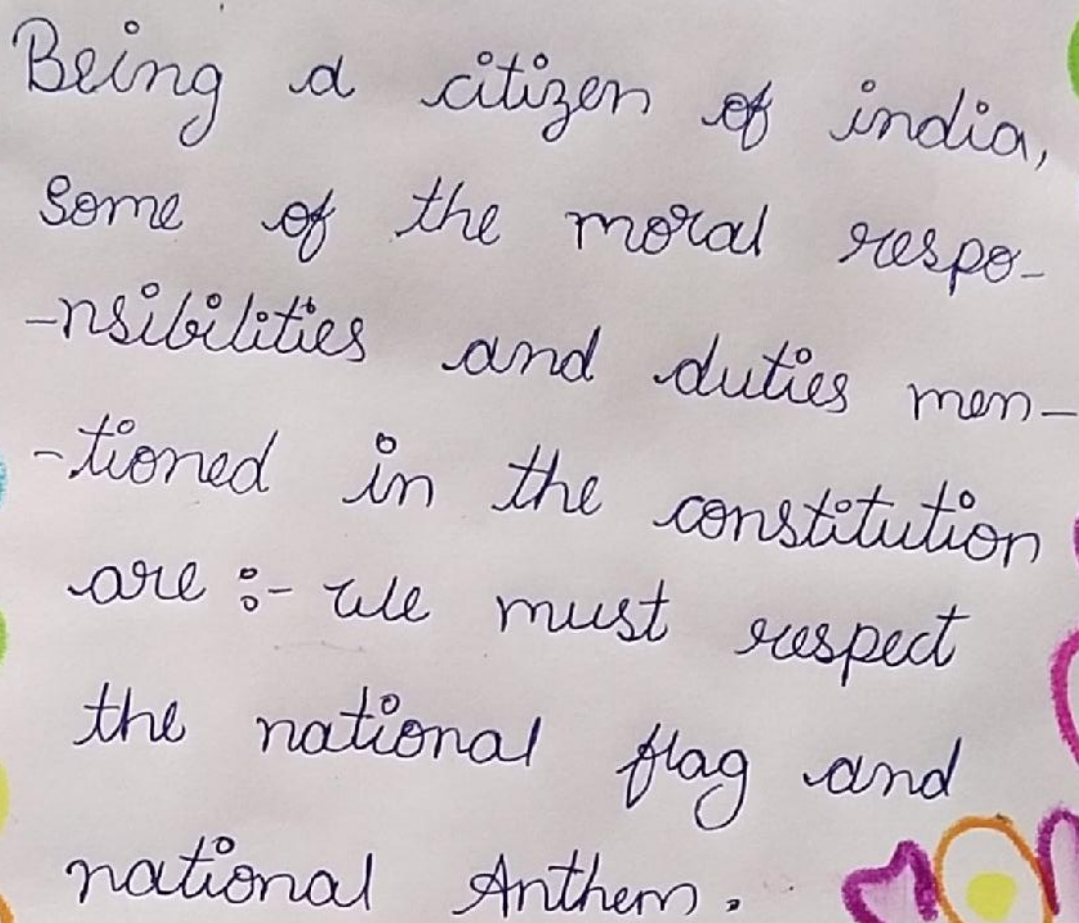 Being a citizen of india,
Some of the moral respo-
-nsibilities and duties men-
-tioned in the constitution
are :- We must respect
the national flag and
national Anthem.